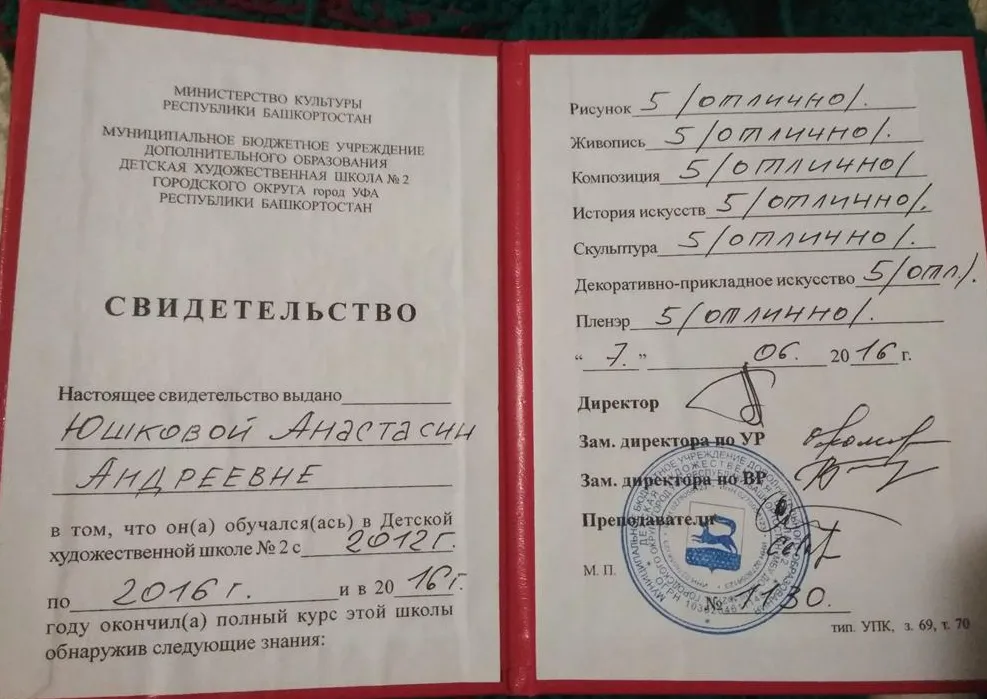 МИНИСТЕРСТВО КУЛЬТУРЫ
РЕСПУБЛИКИ БАШКОРТОСТАН
МУНИЦИПАЛЬНОЕ БЮДЖЕТНОЕ УЧРЕЖДЕНИЕ
ДОПОЛНИТЕЛЬНОГО ОБРАЗОВАНИЯ
ДЕТСКАЯ ХУДОЖЕСТВЕННАЯ ШКОЛА № 2
ГОРОДСКОГО ОКРУГА город УФА
РЕСПУБЛИКИ БАШКОРТОСТАН
СВИДЕТЕЛЬСТВО
Настоящее свидетельство выдано
Юшковой Анастасии
Андреевне
в том, что он(а) обучался(ась) в Детской
художественной школе № 2 с 2012г.
по 2016 г. и в 20 16г.
году окончил(а) полный курс этой школы
обнаружив следующие знания:
Рисунок 5 /отлично/.
Живопись 5 /отлично/.
Композиция 5 /отлично/
История искусств 5 /отлично/.
Скульптура 5 /отлично/.
Декоративно-прикладное искусство 5/отл/.
Пленэр 5 /отлично/.
“ 7. ” 06. 2016 г.
Директор
Зам. директора по УР
Зам. директора по ВР
Преподаватели
М. П.
№ 30.
тип. УПК, з. 69, т. 70